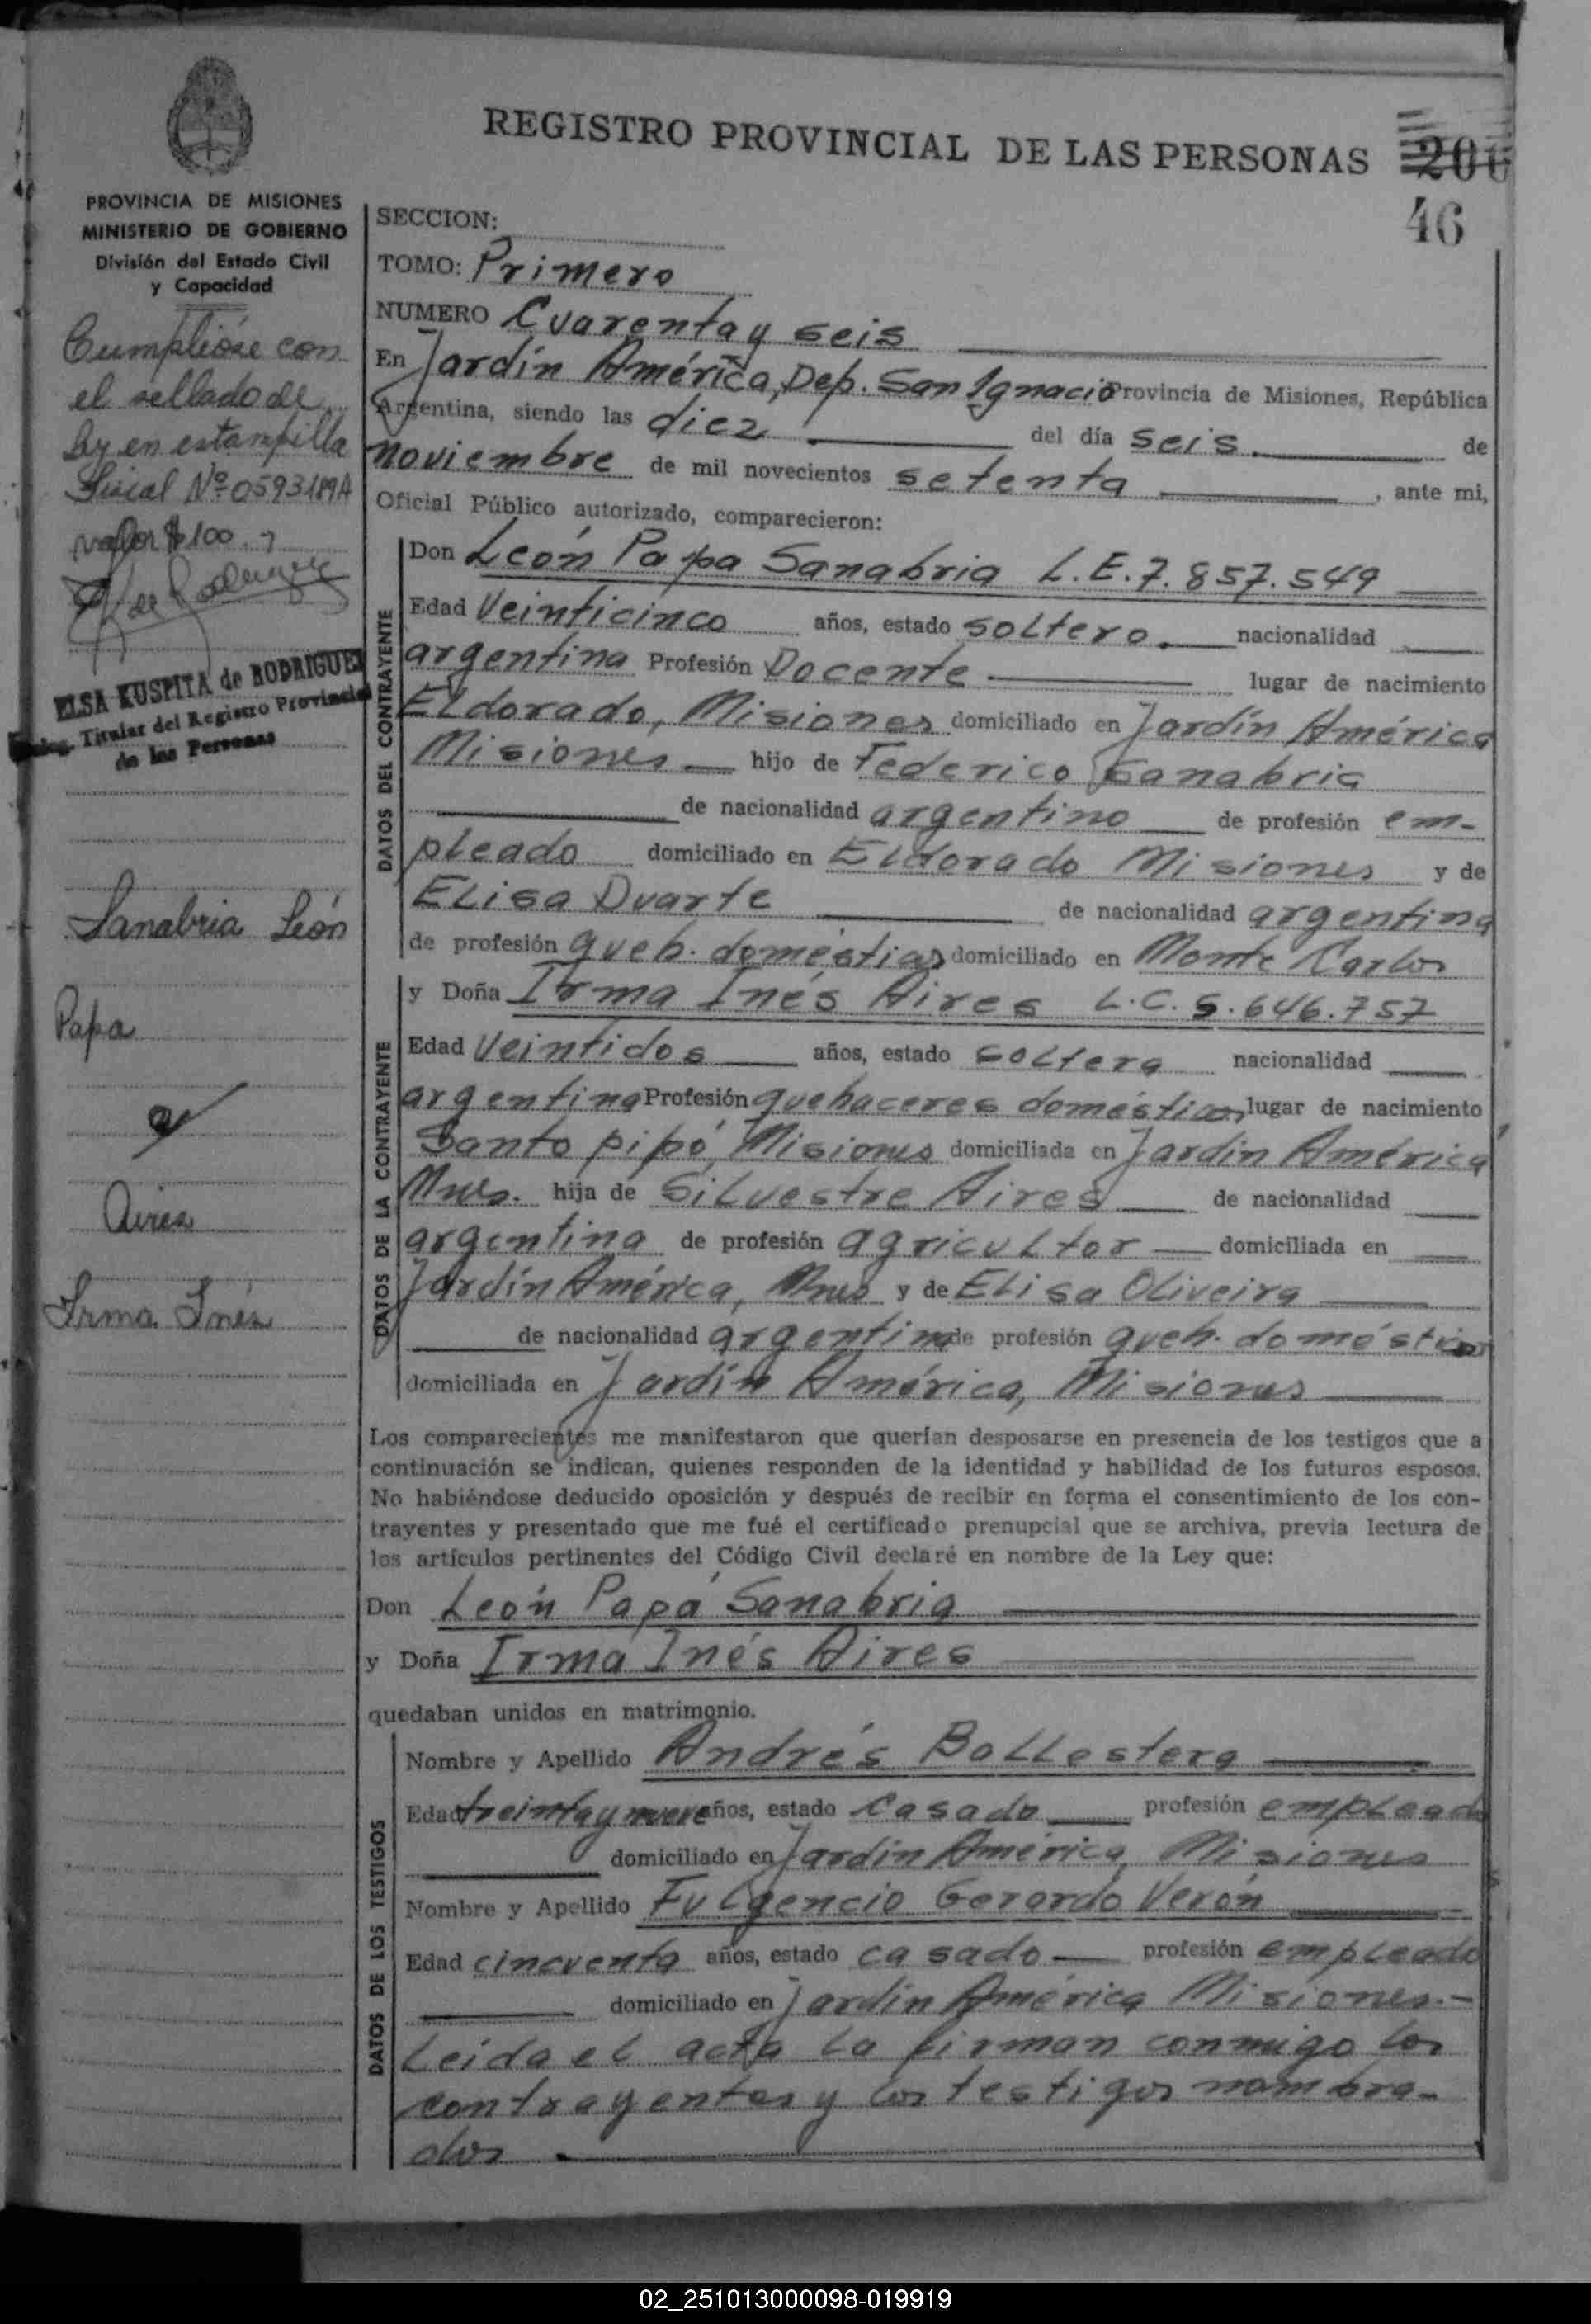 REGISTRO PROVINCIAL DE LAS PERSONAS 200
46
PROVINCIA DE MISIONES
MINISTERIO DE GOBIERNO
División del Estado Civil
y Capacidad
Cumplióse con
el sellado de
ley en estampilla
fiscal Nº 0593189A
valor $ 100.-
ELSA KUSPITA de RODRIGUEZ
Titular del Registro Provincial
de las Personas
Sanabria León
Papa
Aires
Irma Inés
SECCION:
TOMO: Primero
NUMERO Cuarenta y seis
En Jardín América, Dep. San Ignacio Provincia de Misiones, República
Argentina, siendo las diez del día seis de
noviembre de mil novecientos setenta, ante mi,
Oficial Público autorizado, comparecieron:
DATOS DEL CONTRAYENTE
Don León Papa Sanabria L.E.7.857.549
Edad Veinticinco años, estado soltero. nacionalidad
argentina Profesión Docente lugar de nacimiento
Eldorado, Misiones domiciliado en Jardín América
Misiones hijo de Federico Sanabria
de nacionalidad argentino de profesión em-
pleado domiciliado en Eldorado Misiones y de
Elisa Duarte de nacionalidad argentina
de profesión queh. domésticas domiciliado en Monte Carlos
DATOS DE LA CONTRAYENTE
y Doña Irma Inés Aires L.C. 5.646.757
Edad Veintidos años, estado soltera nacionalidad
argentina Profesión quehaceres domésticos lugar de nacimiento
Santo pipó, Misiones domiciliada en Jardín América
Mnes. hija de Silvestre Aires de nacionalidad
argentina de profesión agricultor domiciliada en
Jardín América, Mnes y de Elisa Oliveira
de nacionalidad argentina de profesión queh. domésticos
domiciliada en Jardín América, Misiones
Los comparecientes me manifestaron que querían desposarse en presencia de los testigos que a
continuación se indican, quienes responden de la identidad y habilidad de los futuros esposos.
No habiéndose deducido oposición y después de recibir en forma el consentimiento de los con-
trayentes y presentado que me fué el certificado prenupcial que se archiva, previa lectura de
los artículos pertinentes del Código Civil declaré en nombre de la Ley que:
Don León Papá Sanabria
y Doña Irma Inés Aires
quedaban unidos en matrimonio.
DATOS DE LOS TESTIGOS
Nombre y Apellido Andrés Ballestera
Edad treinta y nueve años, estado casado profesión empleado
domiciliado en Jardín América, Misiones
Nombre y Apellido Fulgencio Gerardo Verón
Edad cincuenta años, estado casado profesión empleado
domiciliado en Jardín América Misiones.-
Leída el acta la firman conmigo los
contrayentes y los testigos nombra-
dos
02_251013000098-019919